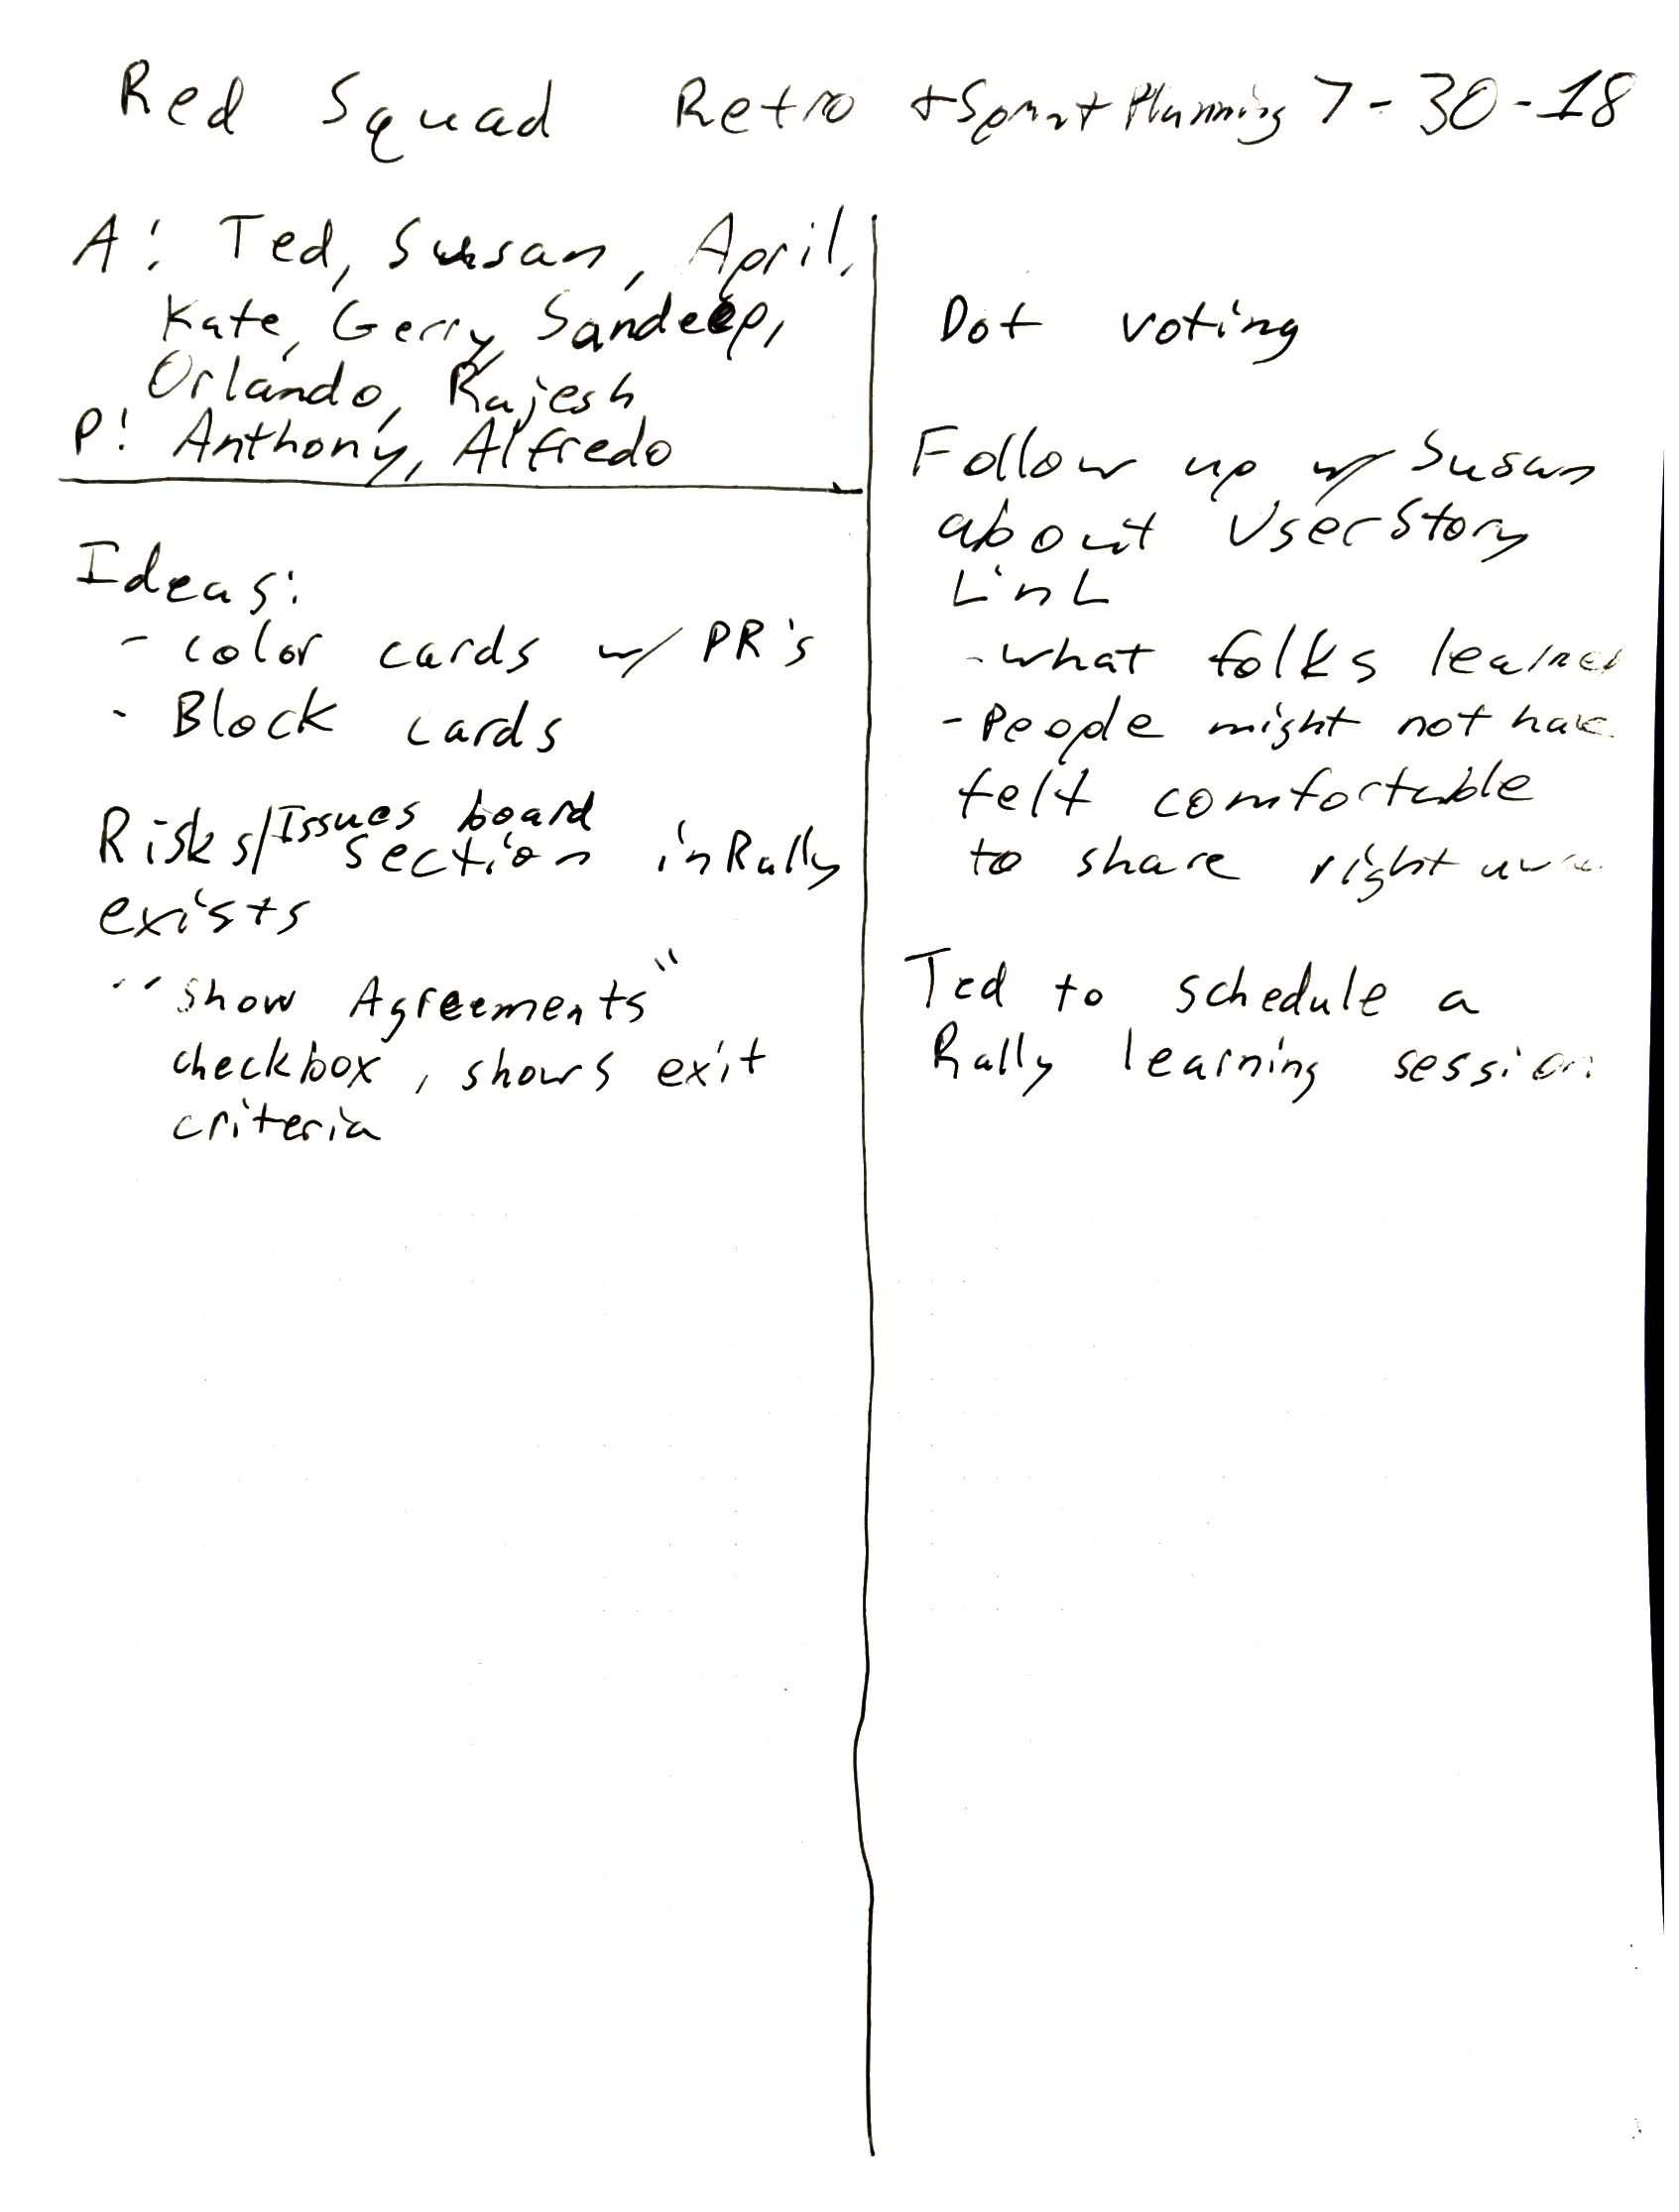 Red Squad Retro + Sprint Planning 7-30-18
A: Ted, Susan, April,
Kate, Gerry, Sandeep,
Orlando, Rajesh
P: Anthony, Alfredo
Ideas:
- color cards w/ PR's
- Block cards
Risks/Issues board
section in Rally
exists
- "show Agreements"
checkbox, shows exit
criteria
Dot voting
Follow up w/ Susan
about User Story
- what folks learned
- People might not have
felt comfortable
to share right
Ted to schedule a
Rally learning session